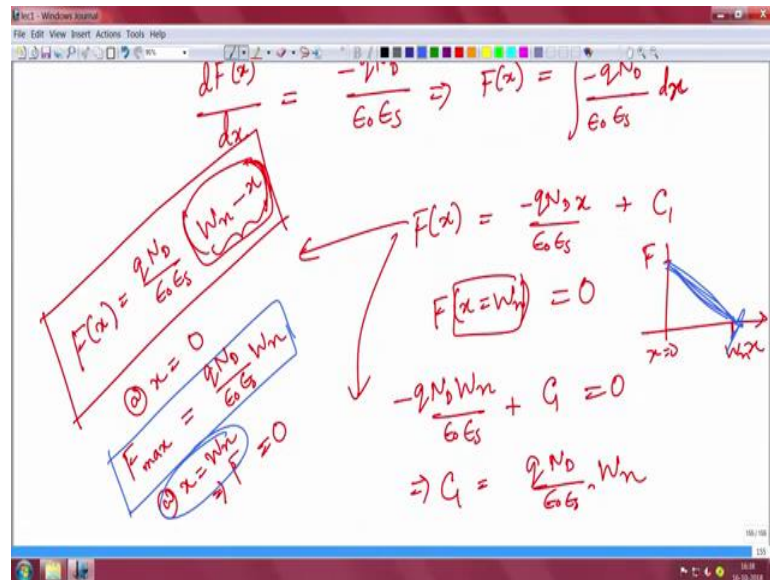 lec1 - Windows Journal
File Edit View Insert Actions Tools Help
dF(x)/dx = -qN_D/ε₀ε_s ⇒ F(x) = ∫ -qN_D/ε₀ε_s dx
F(x) = -qN_D x/ε₀ε_s + C₁
F(x = W_n) = 0
-qN_D W_n/ε₀ε_s + C₁ = 0
⇒ C₁ = qN_D/ε₀ε_s . W_n
F(x) = qN_D/ε₀ε_s (W_n - x)
@ x = 0
F_max = qN_D/ε₀ε_s W_n
@ x = W_n
⇒ F = 0
F
x=0
W_n
x
155
16:38